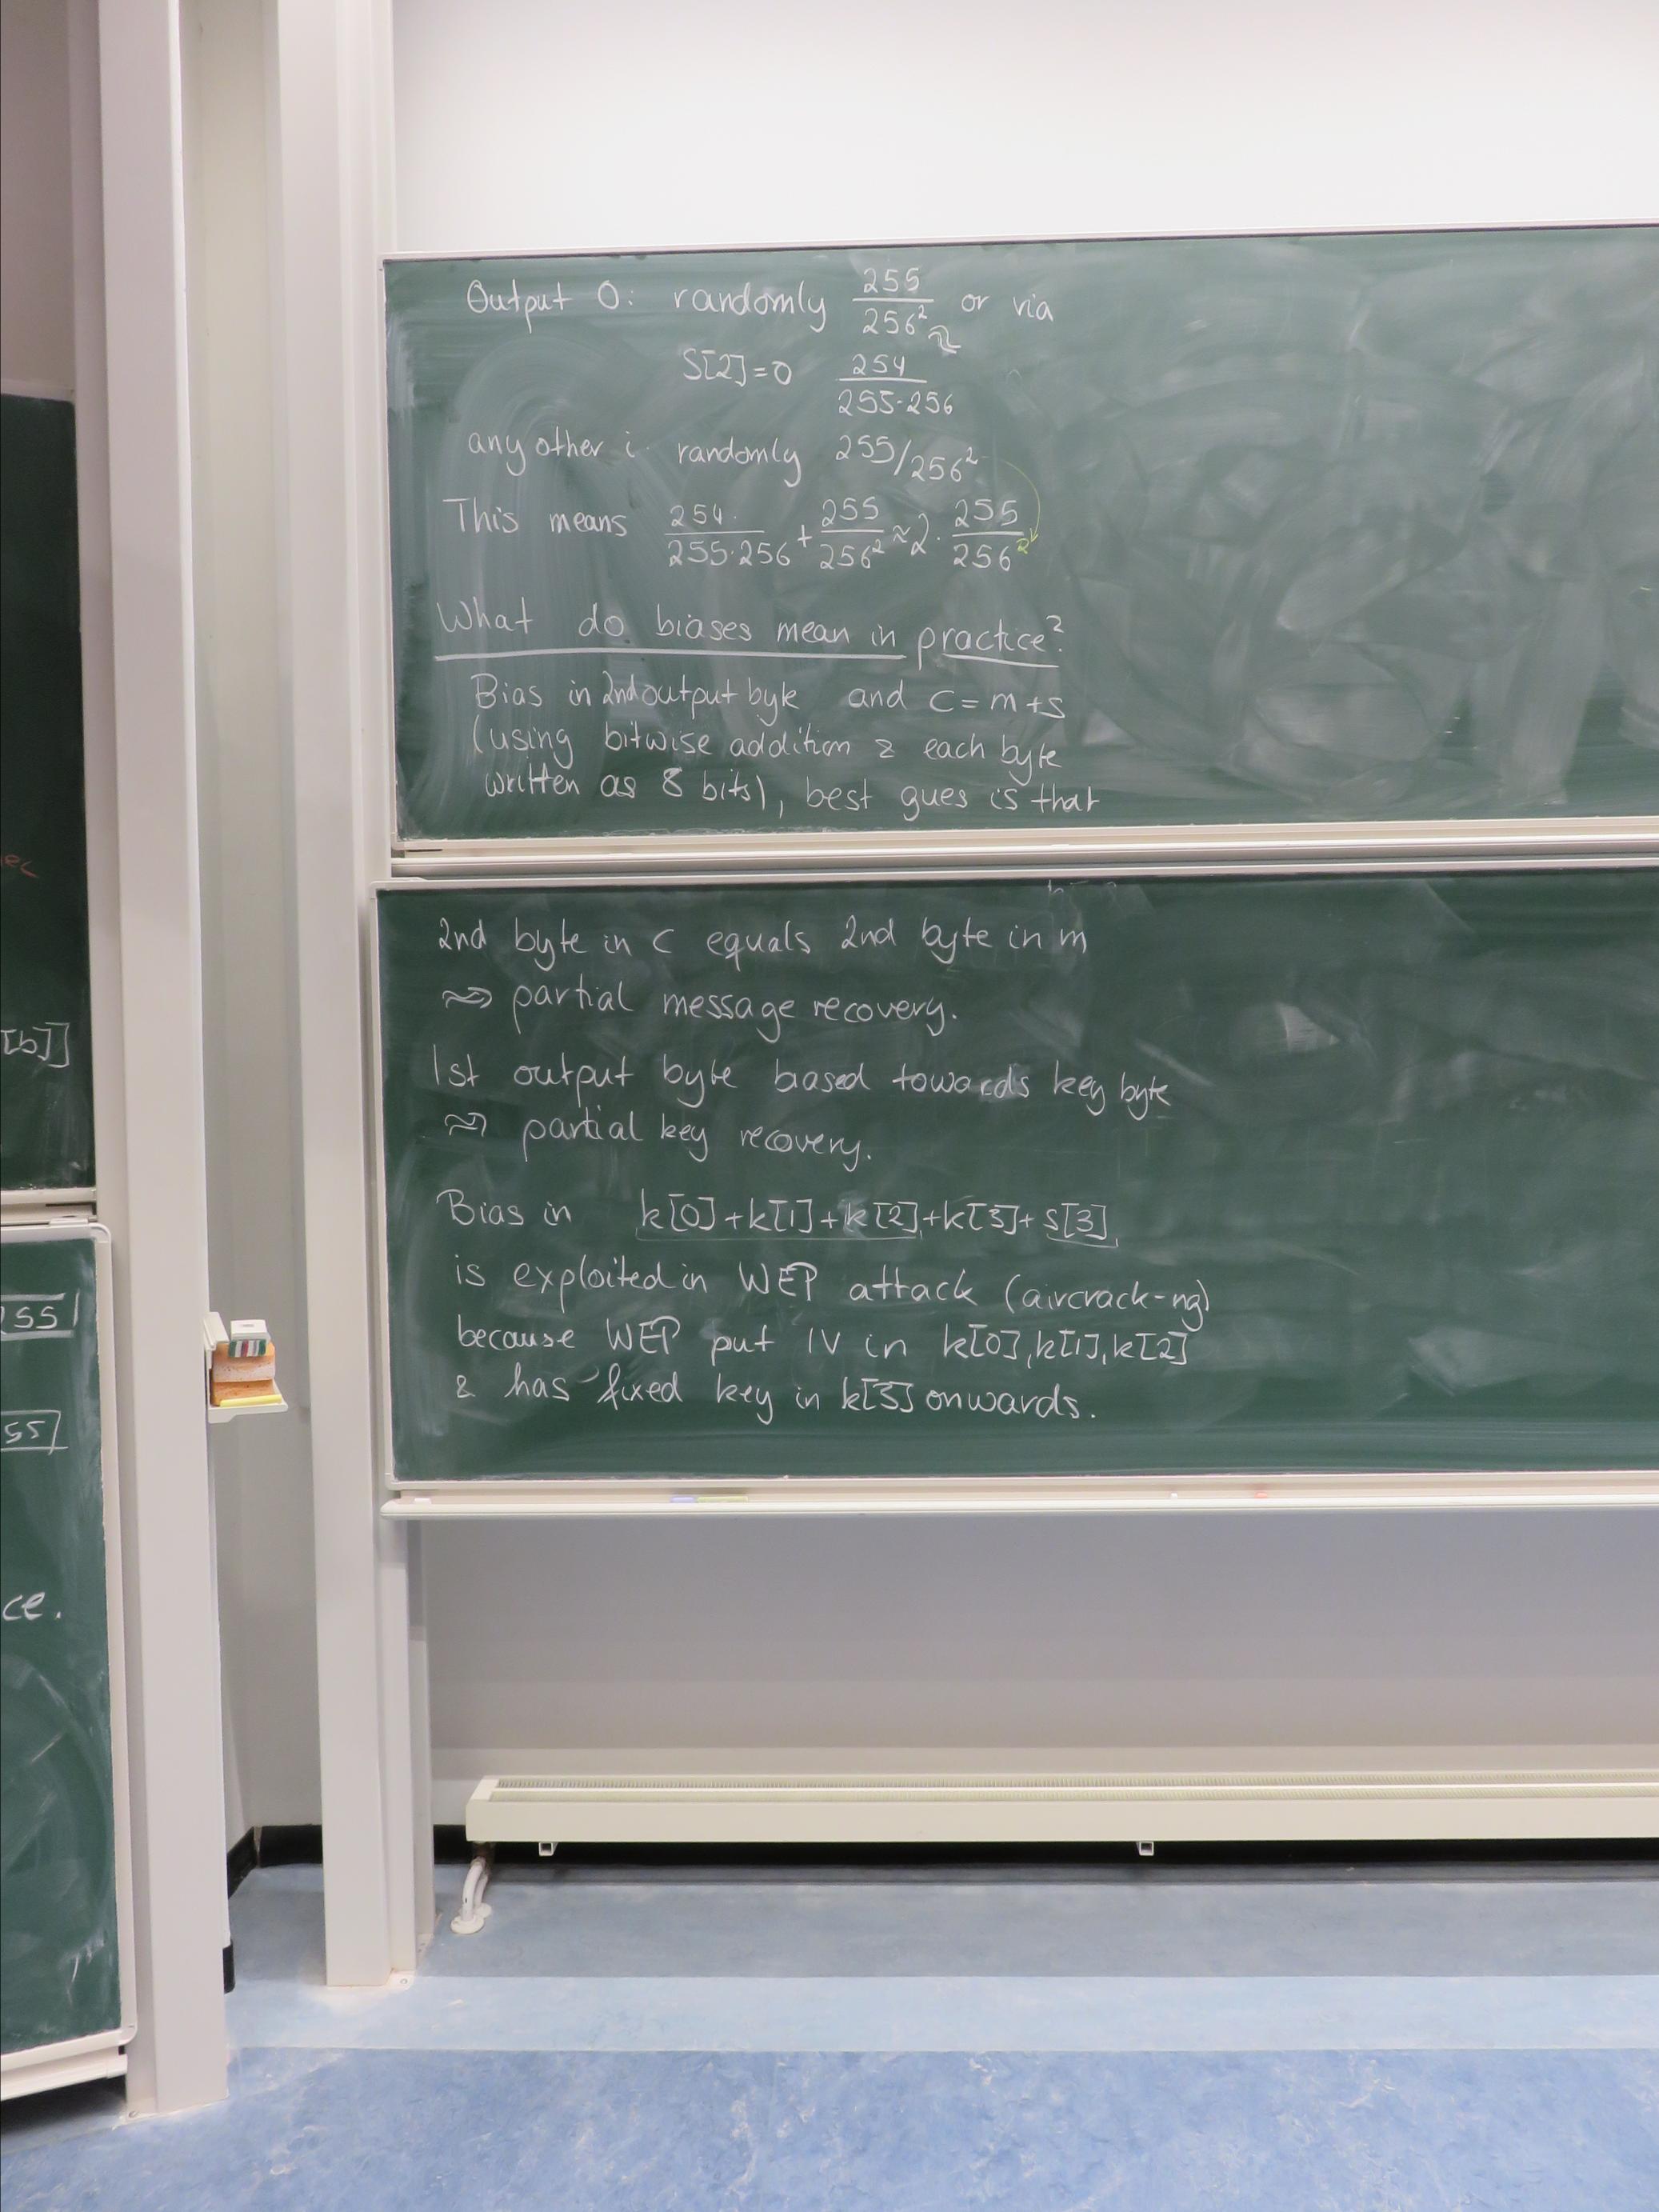 Output 0: randomly 255/256² or via
S[2]=0 254/255·256
any other i randomly 255/256²
This means 254/255·256 + 255/256² ≈ 2 · 255/256²
What do biases mean in practice?
Bias in 2nd output byte and c = m + s
(using bitwise addition & each byte
written as 8 bits), best gues is that
2nd byte in c equals 2nd byte in m
⇝ partial message recovery.
1st output byte biased towards key byte
⇝ partial key recovery.
Bias in k[0]+k[1]+k[2]+k[3]+s[3]
is exploited in WEP attack (aircrack-ng)
because WEP put IV in k[0],k[1],k[2]
& has fixed key in k[3] onwards.
[b]]
255
55
ce.